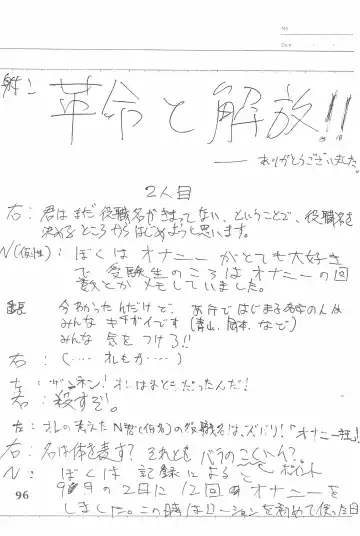 No.
Date
革命と解放!!
ありがとうございました。
2人目
右:君はまだ役職名がきまってない、ということで、役職名を
決めるところからはじめようと思います。
N(仮性):ぼくはオナニーがとても大好き
で受験生のころはオナニーの回
数とかメモしていました。
今わかったんだけど、あ行ではじまる名字の人は
みんなキチガイです(青山、岡本、など)
みんな気をつけろ!!
右:(‥‥オレもか‥‥)
左:ザンネン!オレはまともだったんだ!
右:殺すぞ。
左:オレの考えたN君(仮名)の役職名は、ズバリ!「オナニー狂」!
右:名は体を表す?それともバラのこくハク?
N:ぼくは記録による と ポイント
9月の2日に12回 オナニーを
しました。この時はローションを初めて使った日
96